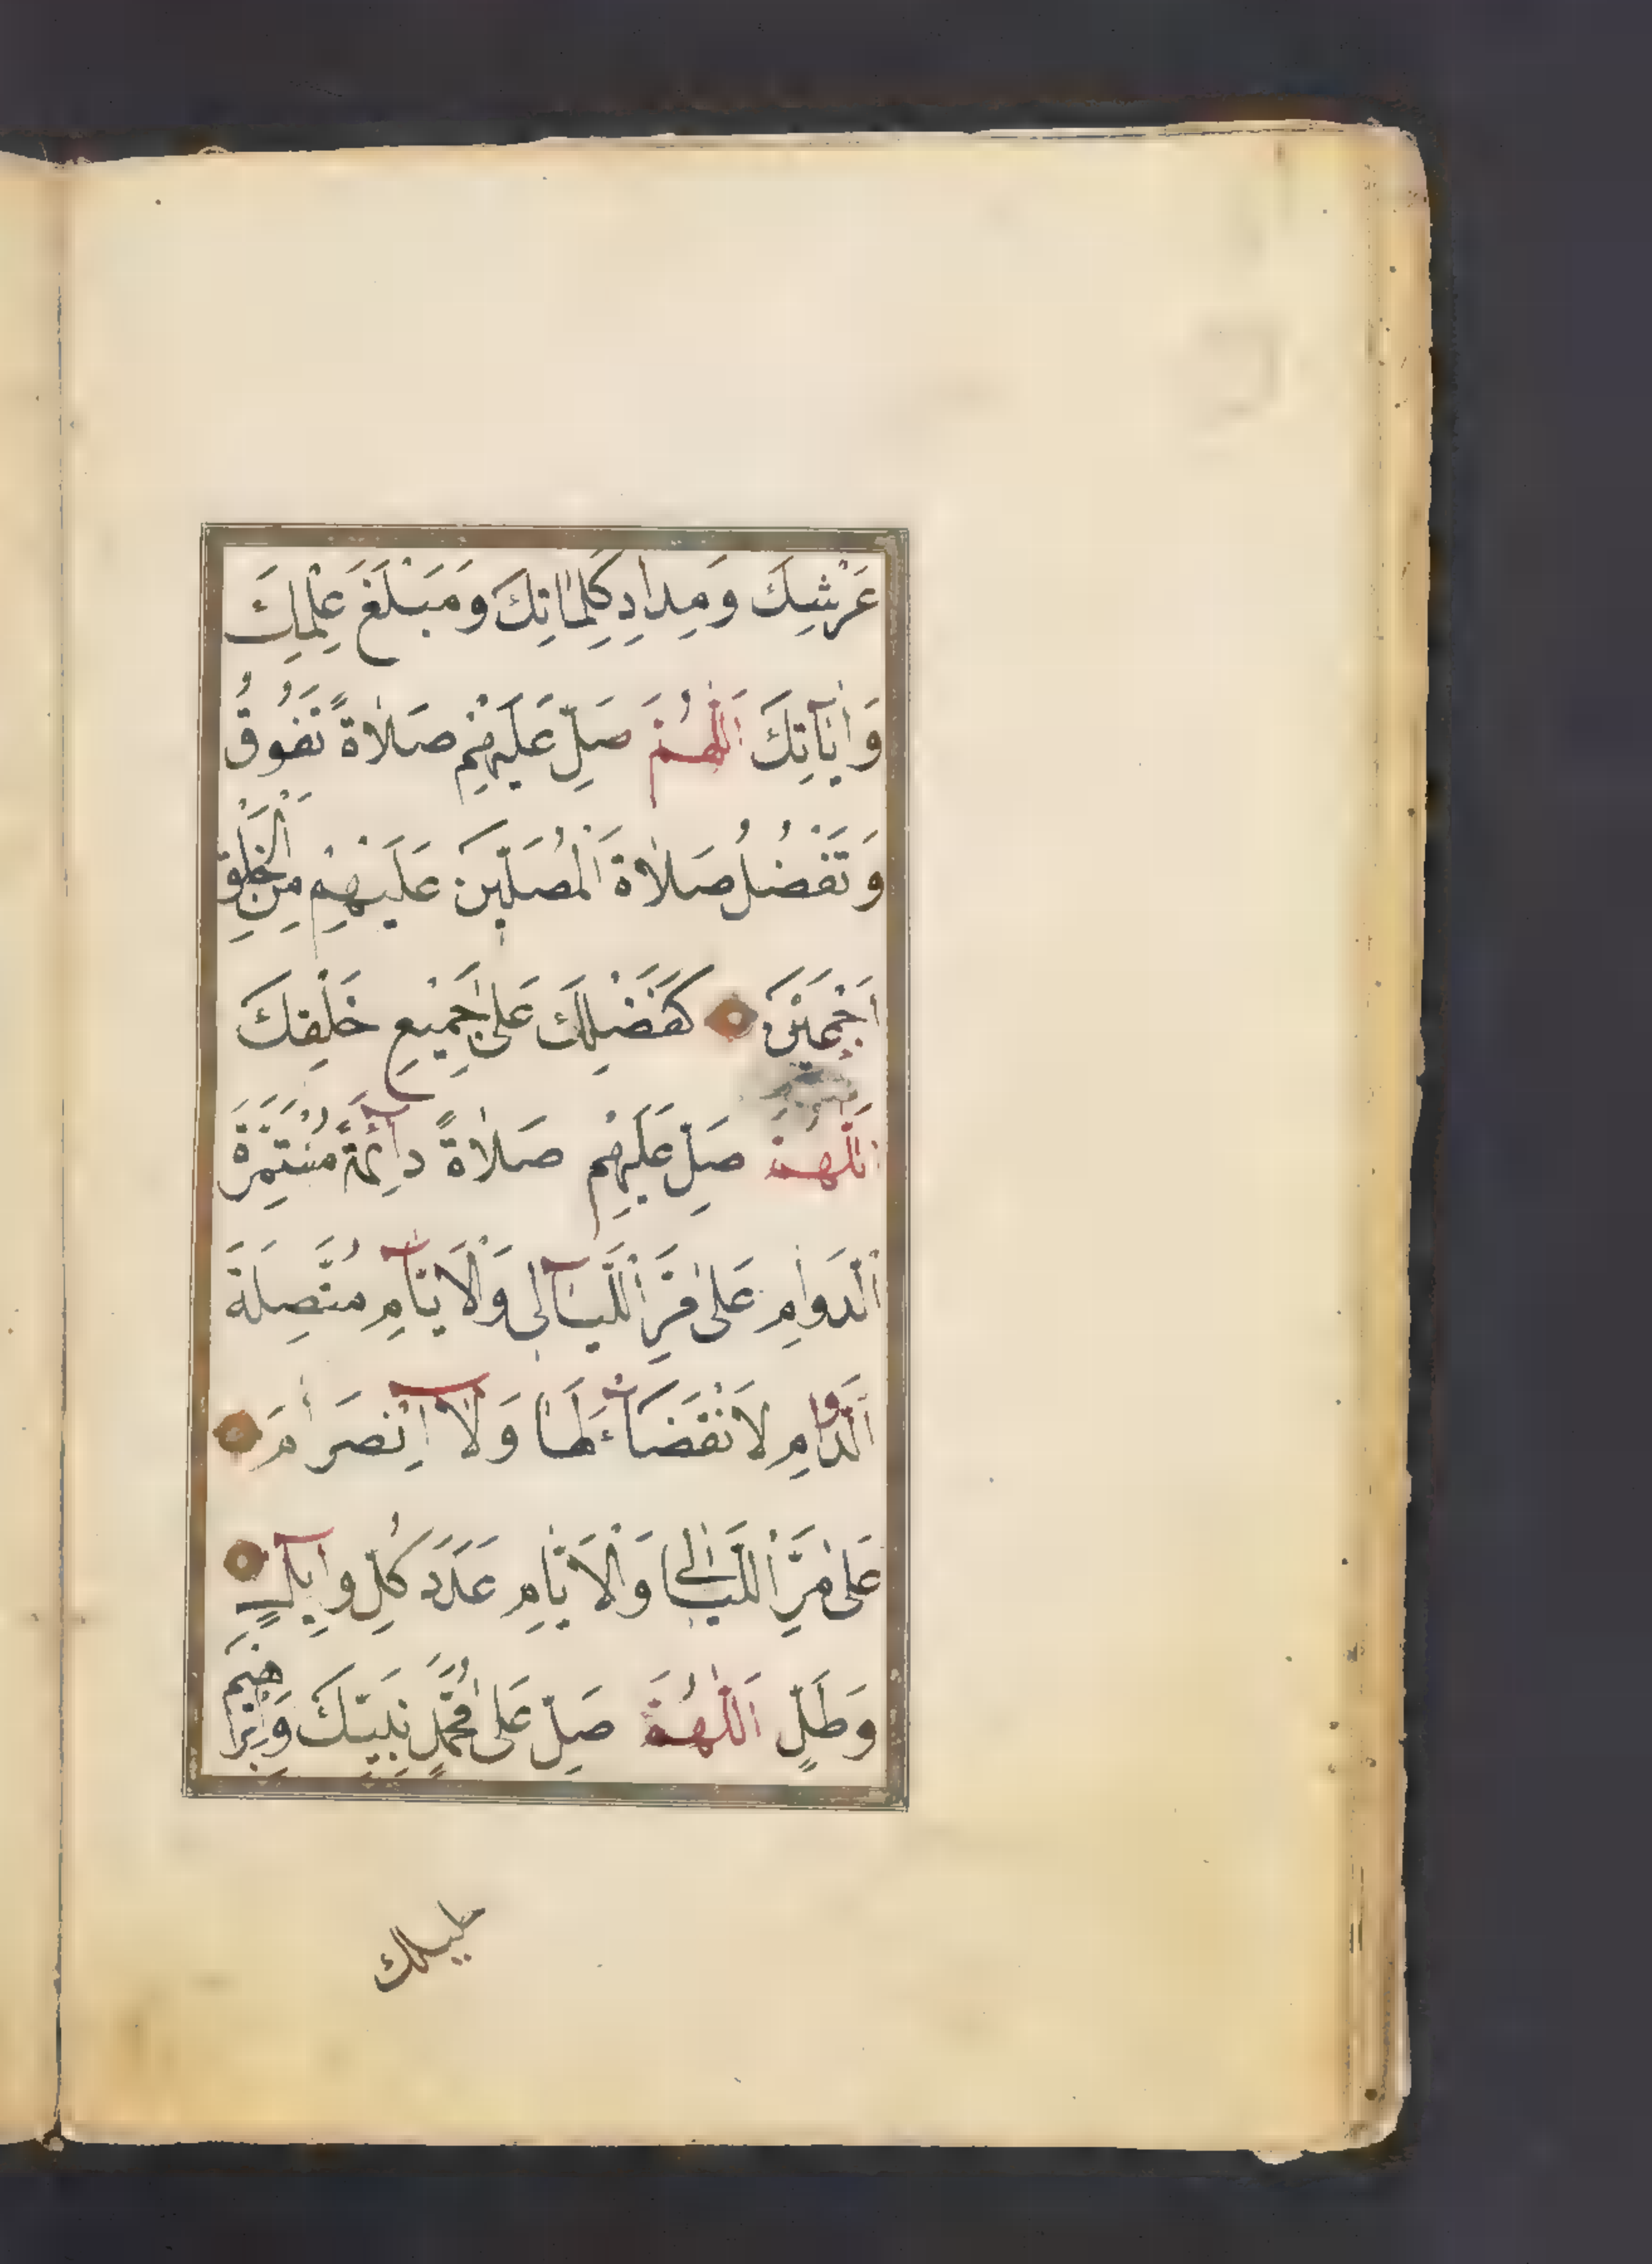 عَرْشِكَ وَمِدَادِ كَلِمَاتِكَ وَمَبْلَغَ عِلْمِكَ
وَاٰيَاتِكَ اَللّٰهُمَّ صَلِّ عَلَيْهِمْ صَلَاةً تَفُوقُ
وَتَفْضُلُ صَلَاةَ الْمُصَلِّينَ عَلَيْهِمْ مِنَ الْخَلْقِ
اَجْمَعِينَ كَفَضْلِكَ عَلٰى جَمِيعِ خَلْقِكَ
اَللّٰهُمَّ صَلِّ عَلَيْهِمْ صَلَاةً دَآئِمَةً مُسْتَمِرَّةَ
الدَّوَامِ عَلٰى مَرِّ اللَّيَالِى وَالْاَيَّامِ مُتَّصِلَةَ
الدَّوَامِ لَا انْقِضَآءَ لَهَا وَلَا انْصِرَامَ
عَلٰى مَرِّ اللَّيَالِى وَالْاَيَّامِ عَدَدَ كُلِّ وَابِلٍ
وَطَلٍّ اَللّٰهُمَّ صَلِّ عَلٰى مُحَمَّدٍ نَبِيِّكَ وَاِبْرَاهِيمَ
خليلك